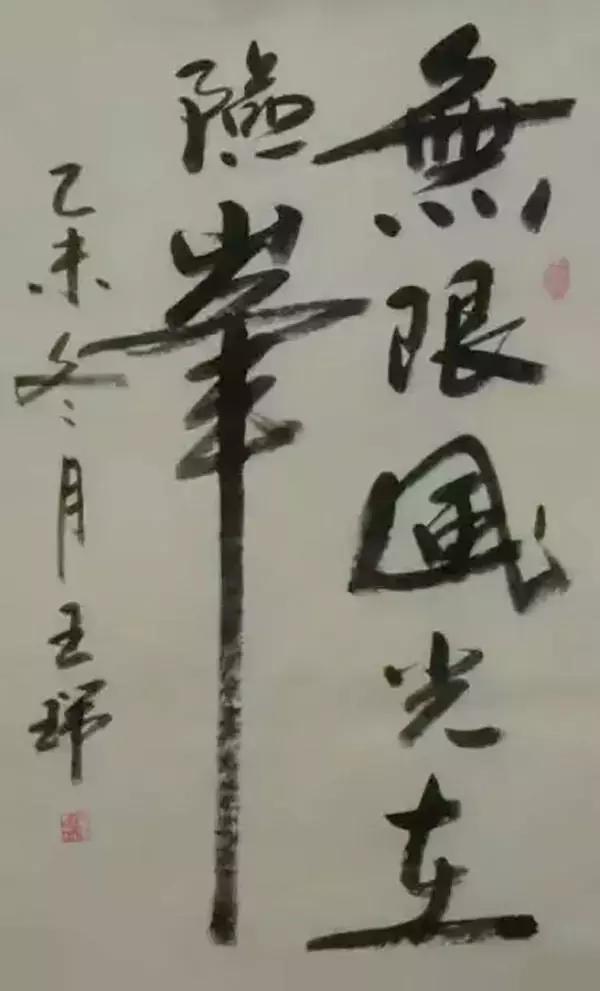 無限風光在
險峯
乙未冬月王琳